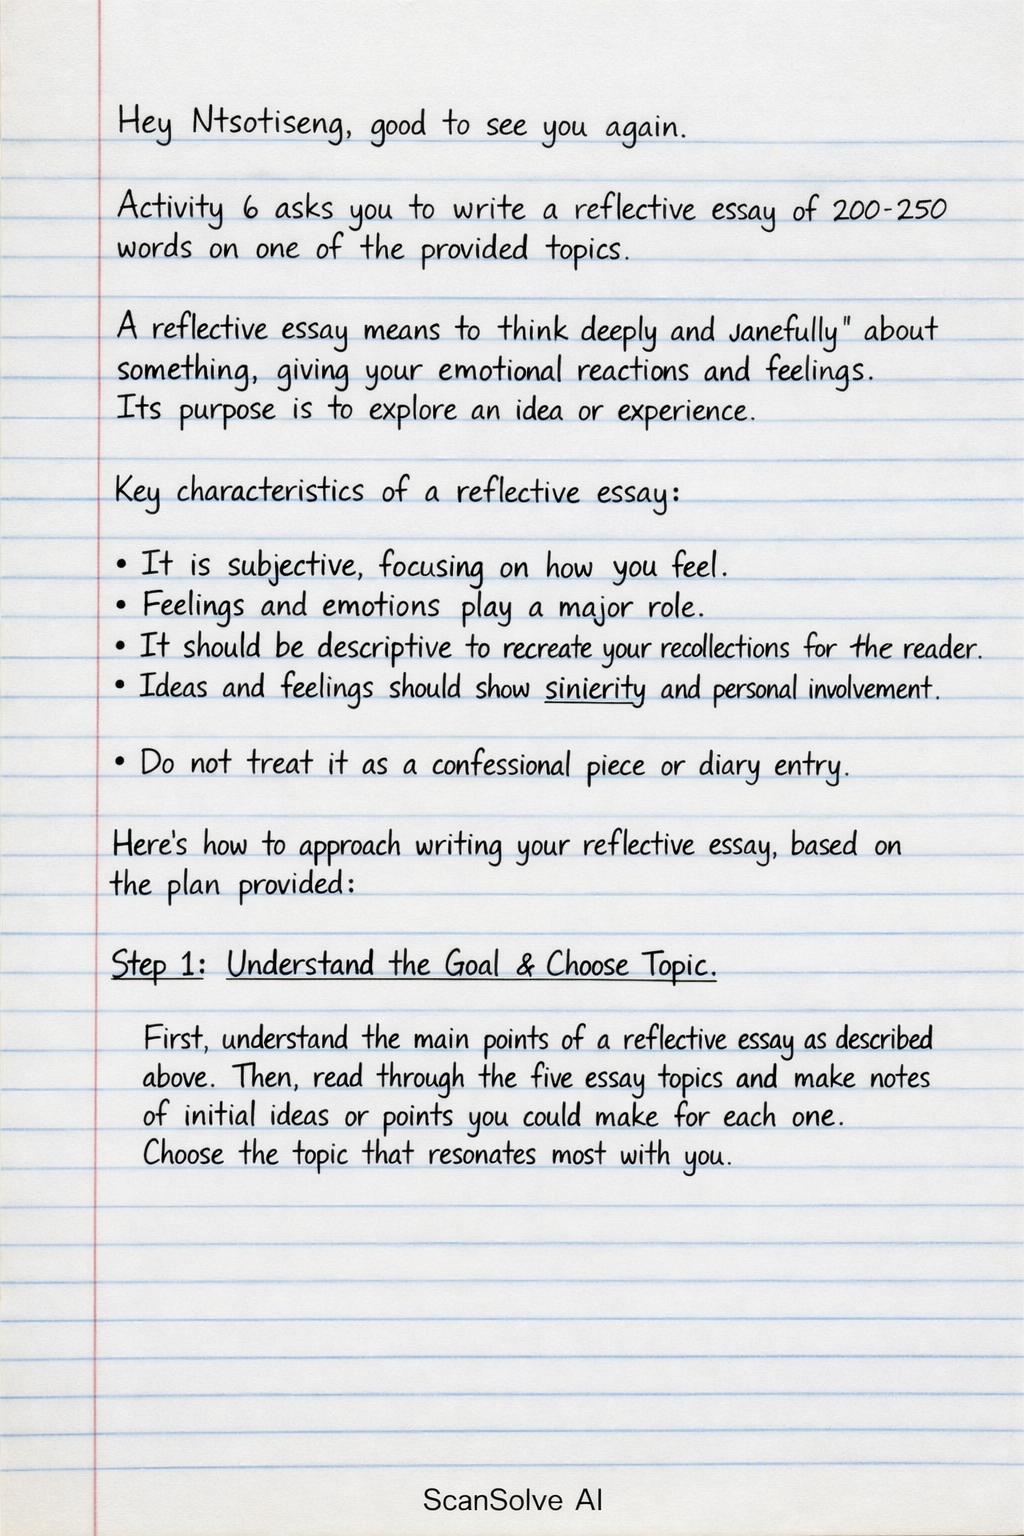 Hey Ntsotiseng, good to see you again.
Activity 6 asks you to write a reflective essay of 200-250
words on one of the provided topics.
A reflective essay means to think deeply and Janefully" about
something, giving your emotional reactions and feelings.
Its purpose is to explore an idea or experience.
Key characteristics of a reflective essay:
• It is subjective, focusing on how you feel.
• Feelings and emotions play a major role.
• It should be descriptive to recreate your recollections for the reader.
• Ideas and feelings should show sinierity and personal involvement.
• Do not treat it as a confessional piece or diary entry.
Here's how to approach writing your reflective essay, based on
the plan provided:
Step 1: Understand the Goal & Choose Topic.
First, understand the main points of a reflective essay as described
above. Then, read through the five essay topics and make notes
of initial ideas or points you could make for each one.
Choose the topic that resonates most with you.
ScanSolve AI